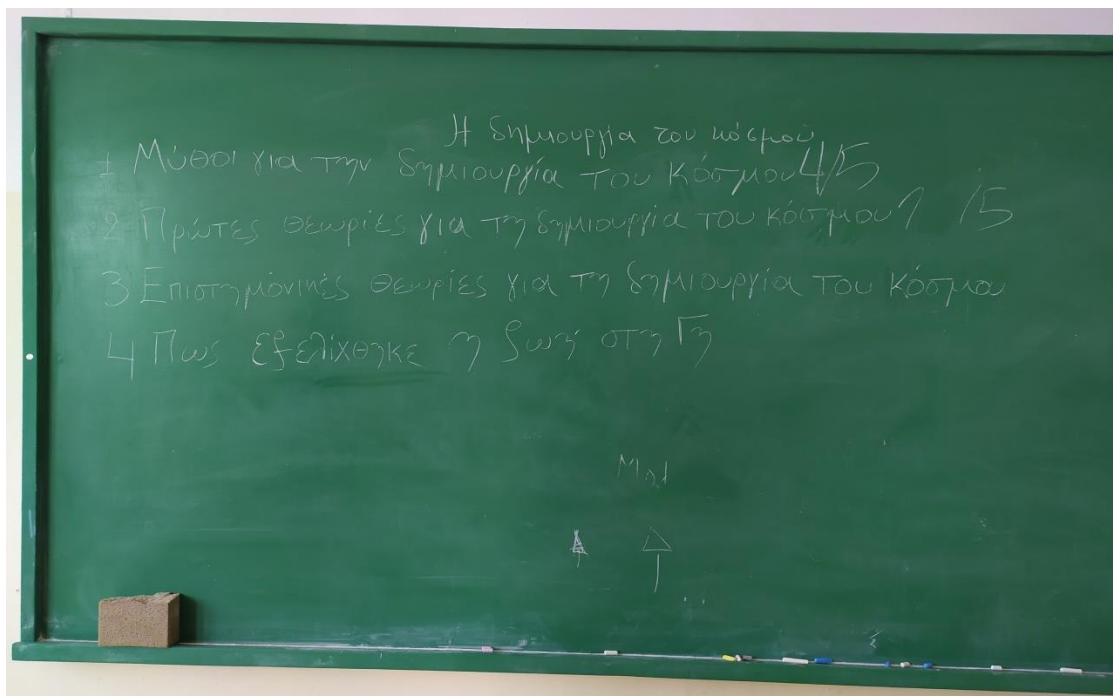 Η δημιουργία του κόσμου
1 Μύθοι για την δημιουργία του Κόσμου 4/5
2 Πρώτες θεωρίες για τη δημιουργία του κόσμου 1 /5
3 Επιστημόνικές θεωρίες για τη δημιουργία του Κόσμου
4 Πως εξελίχθηκε η ζωή στη Γη